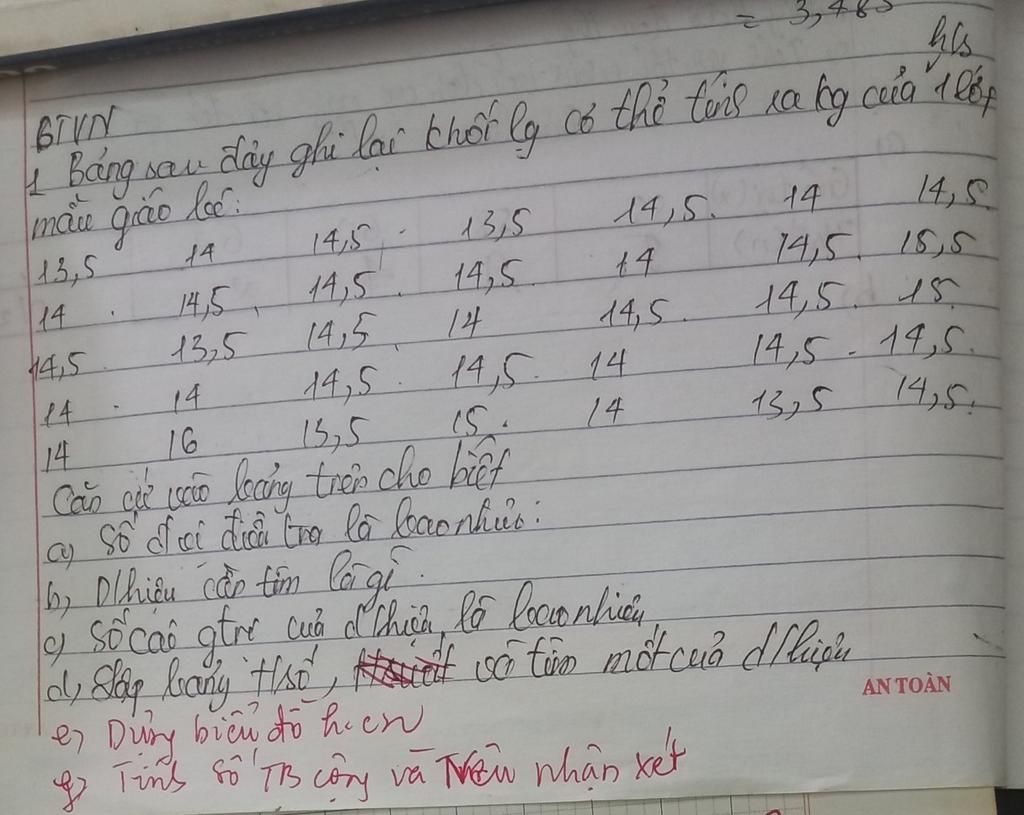 = 3,485
BTVN
hs
1 Bảng sau đây ghi lại khối lg cơ thể tính ra kg của 1 lớp
mẫu giáo bé:
13,5 14 14,5 13,5 14,5 14 14,5
14 14,5 14,5 14,5 14 14,5 15,5
14,5 13,5 14,5 14 14,5 14,5 15
14 14 14,5 14,5 14 14,5 14,5
14 16 13,5 15 14 13,5 14,5
Căn cứ vào bảng trên cho biết
a) Số đvị điều tra là bao nhiêu:
b, D/hiệu cần tìm là gì.
c) Số các gtrị của d/hiệu là bao nhiêu
d, Lập bảng t/số, và tìm mốt của d/hiệu
AN TOÀN
e) Dựng biểu đồ h.cn
g) Tính số TB cộng và Nêu nhận xét